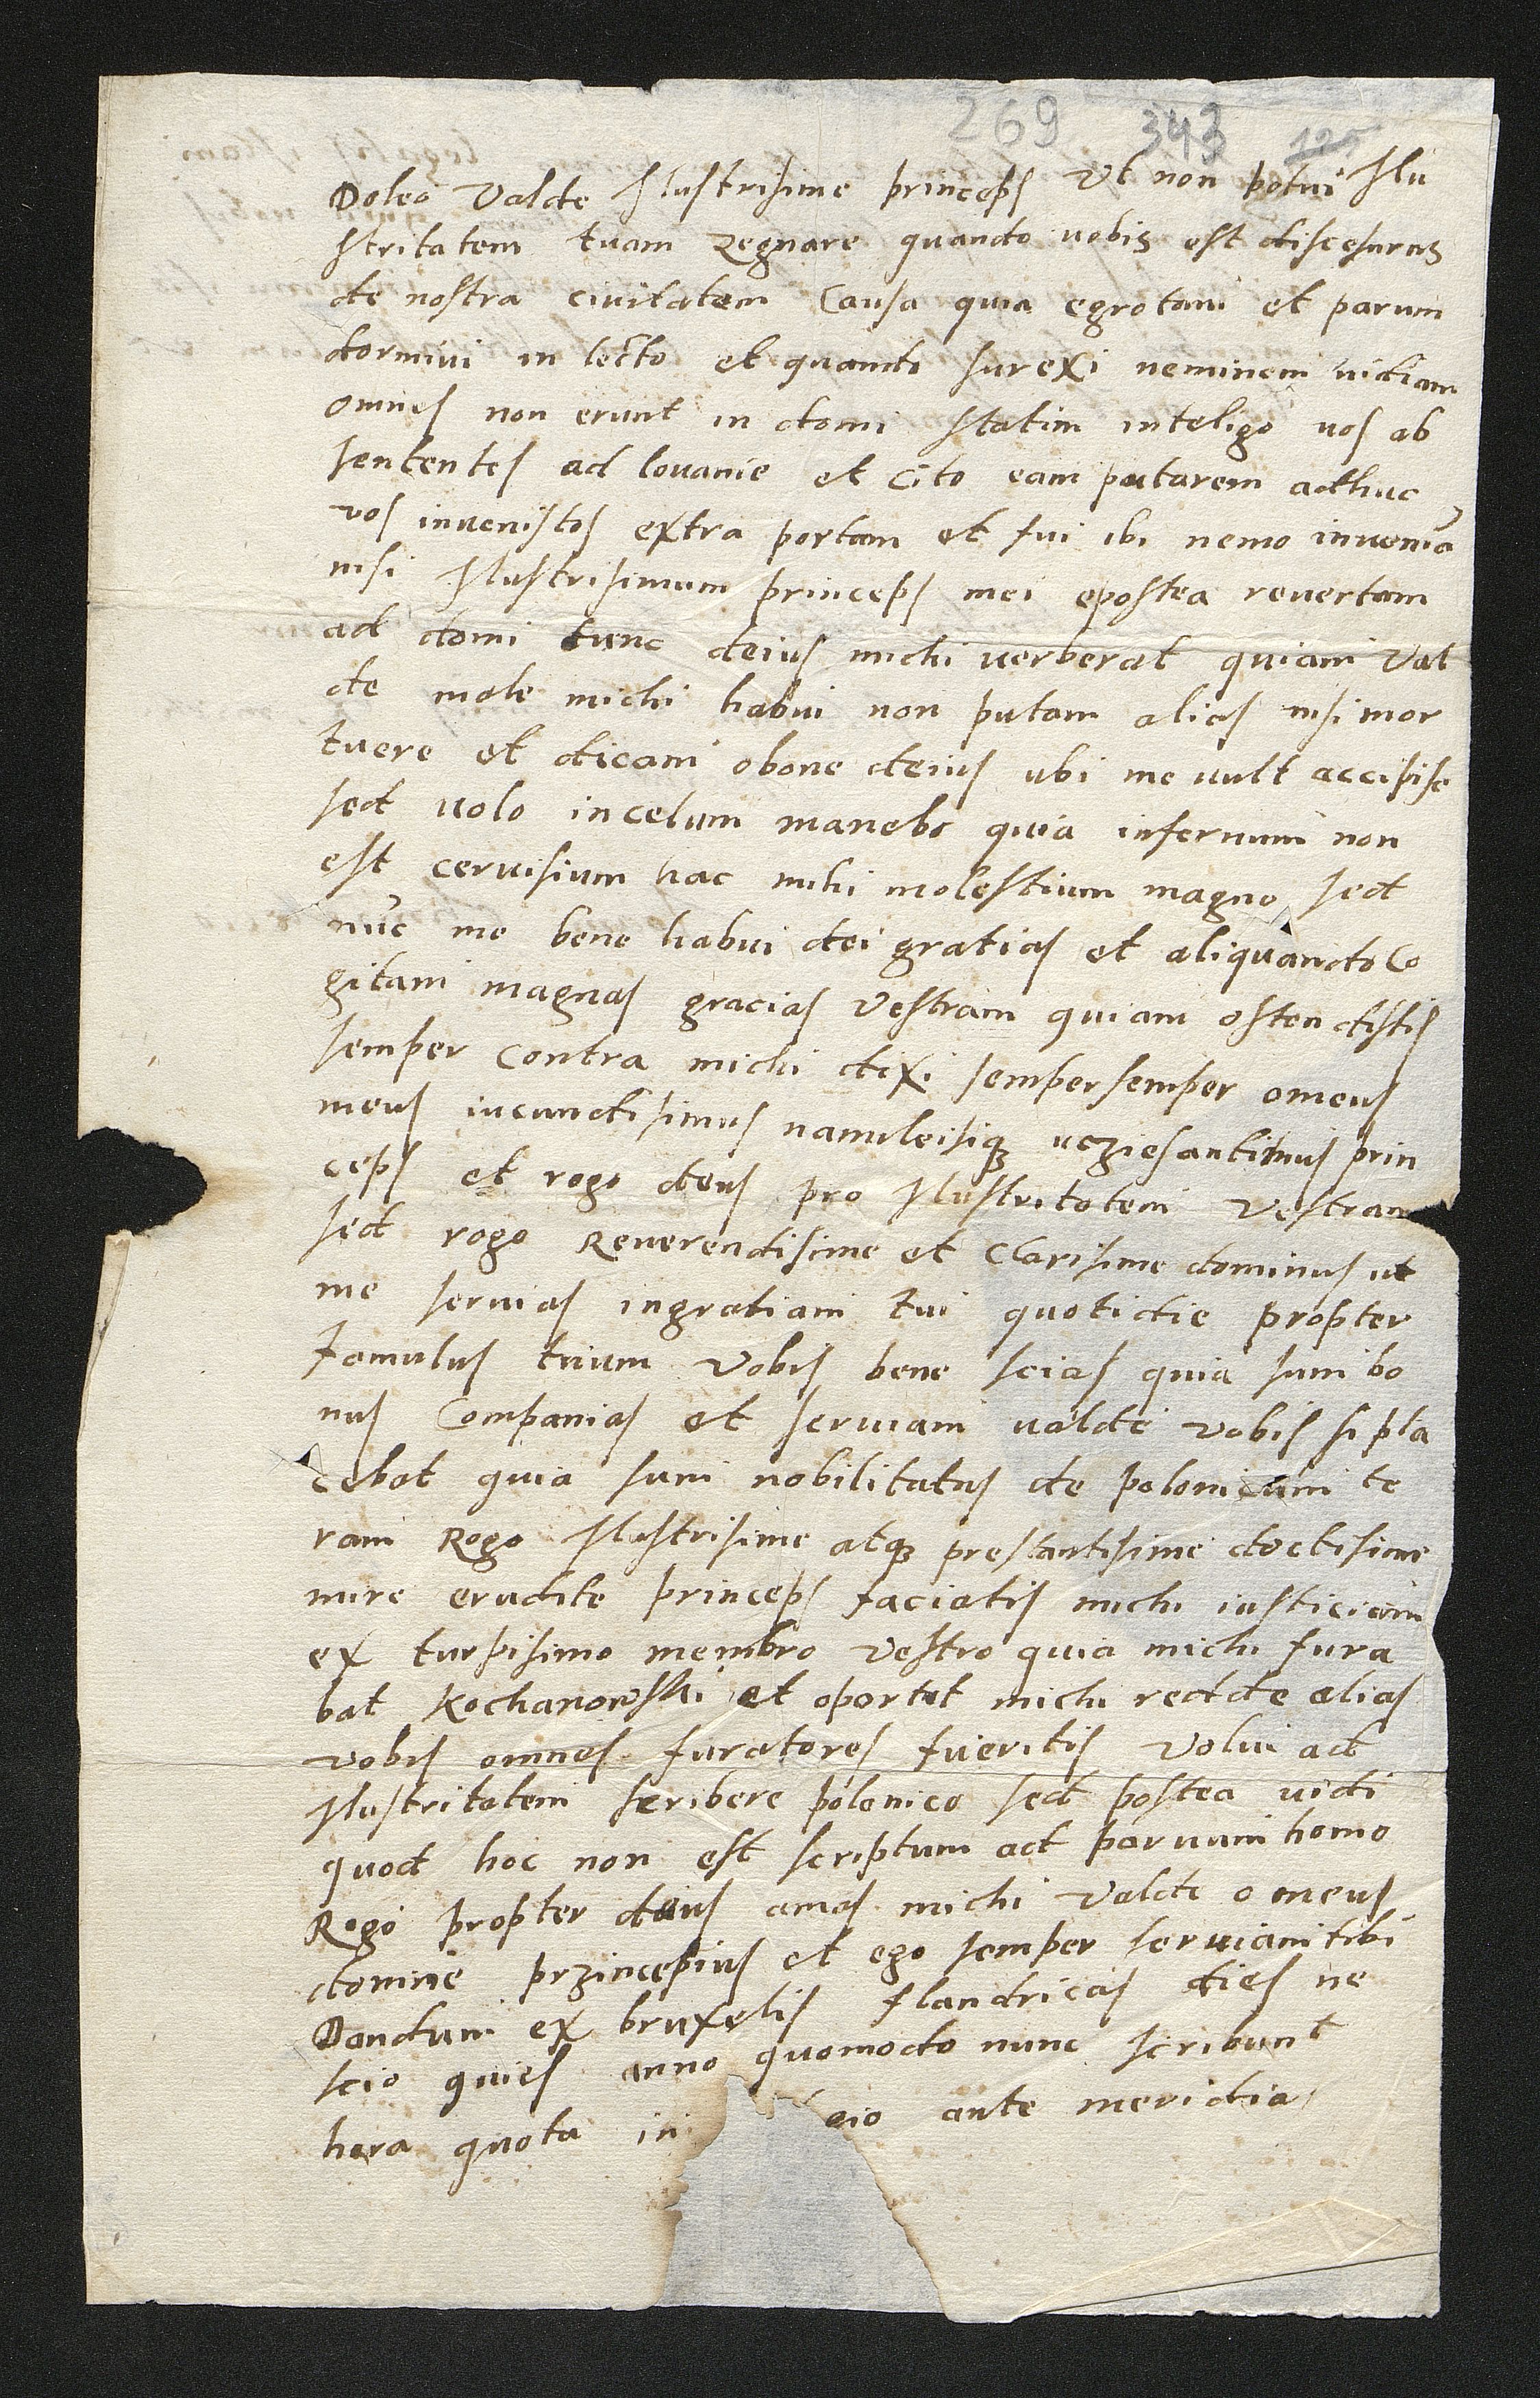 269 343 125
Doleo Valde Ilustrisime princeps Vt non potui Ilu
stritatem tuam Regnare quando uobis est discesurus
de nostra ciuitatem Causa quia egrotaui et parum
dormiui in lecto et quando surexi neminem uidiam
omnes non erunt in domi statim inteligo uos ab
sententes ad louanie et Cito eam putarem adhuc
vos inuenistos extra portam et fui ibi nemo inueniā
nisi Ilustrisimum princeps mei epostea reuertam
ad domi tunc deius michi uerberat quiam Val
de male michi habui non putam alias nisi mor
tuere et dicam obone deius ubi me uult accipise
sed uolo incelum manebo quia infernum non
est ceruisium hac mihi molestium magno sed
nūc me bene habui dei gratias et aliquando Co
gitam magnas gracias Vestram quiam ostendistis
semper Contra michi dixi sempersemper omeus
meus iucundisimus namileisiq; ucziesantimus prin
ceps et rogo deus pro Ilustritatem Vestram
sed rogo Reuerendisime et Clarisime dominus ut
me seruias ingratiam tui quotidie propter
famulus tuum Vobis bene scias quia sum bo
nus Companias et seruiam ualde vobis si pla
cebat quia sum nobilitatus de polonicum te
ram Rogo Ilustrisime atq; prestantisime doctisime
mire erudite princeps faciatis michi iusticiam
ex turpisimo membro Vestro quia michi fura
bat Kochanowski et oportet michi redde alias
vobis omnes furatores fueritis Volui ad
Ilustritatem scribere polonico sed postea uidi
quod hoc non est scriptum ad paruum homo
Rogo propter deus amas michi Valde o meus
domine przincepius et ego semper seruiam tibi
Dandum ex bruxelis flandricas dies ne
scio quies anno quomodo nunc scribunt
hora quota in cio ante meridia